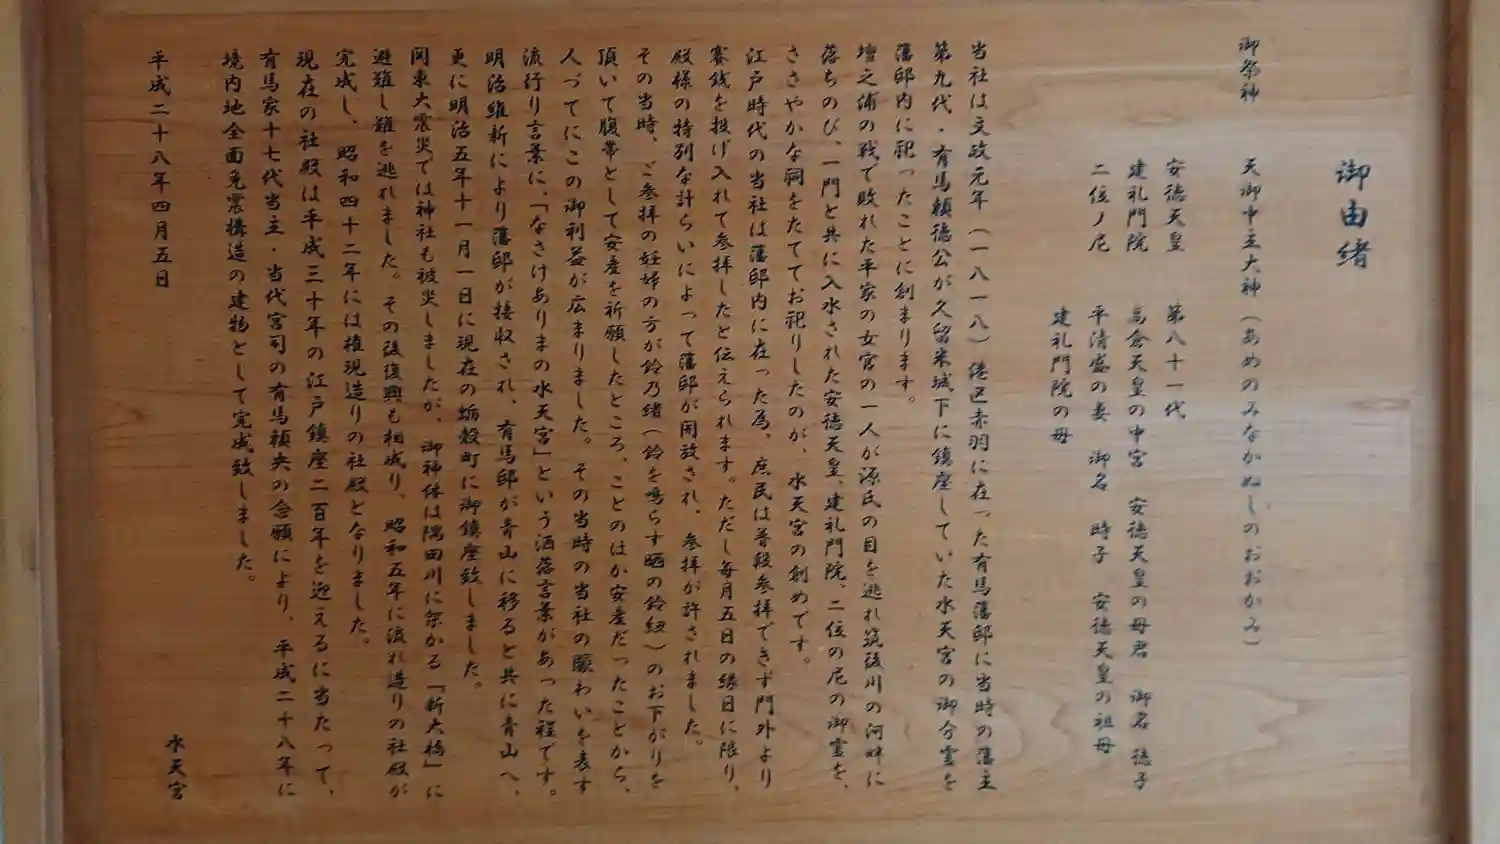 御由緒
御祭神　天御中主大神（あめのみなかぬしのおおかみ）
安徳天皇　第八十一代
建礼門院　高倉天皇の中宮　安徳天皇の母君　御名　徳子
二位ノ尼　平清盛の妻　御名　時子　安徳天皇の祖母
建礼門院の母
当社は文政元年（一八一八）港区赤羽に在った有馬藩邸に当時の藩主
第九代・有馬頼徳公が久留米城下に鎮座していた水天宮の御分霊を
藩邸内に祀ったことに創まります。
壇之浦の戦で敗れた平家の女官の一人が源氏の目を逃れ筑後川の河畔に
落ちのび、一門と共に入水された安徳天皇、建礼門院、二位の尼の御霊を、
ささやかな祠をたててお祀りしたのが、水天宮の創めです。
江戸時代の当社は藩邸内に在った為、庶民は普段参拝できず門外より
賽銭を投げ入れて参拝したと伝えられます。ただし毎月五日の縁日に限り、
殿様の特別な計らいによって藩邸が開放され、参拝が許されました。
その当時、ご参拝の妊婦の方が鈴乃緒（鈴を鳴らす晒の鈴紐）のお下がりを
頂いて腹帯として安産を祈願したところ、ことのほか安産だったことから、
人づてにこの御利益が広まりました。その当時の当社の賑わいを表す
流行り言葉に、「なさけありまの水天宮」という洒落言葉があった程です。
明治維新により藩邸が接収され、有馬邸が青山に移ると共に青山へ、
更に明治五年十一月一日に現在の蛎殻町に御鎮座致しました。
関東大震災では神社も被災しましたが、御神体は隅田川に架かる「新大橋」に
避難し難を逃れました。その後復興も相成り、昭和五年に流れ造りの社殿が
完成し、昭和四十二年には権現造りの社殿となりました。
現在の社殿は平成三十年の江戸鎮座二百年を迎えるに当たって、
有馬家十七代当主・当代宮司の有馬頼央の念願により、平成二十八年に
境内地全面免震構造の建物として完成致しました。
平成二十八年四月五日
水天宮